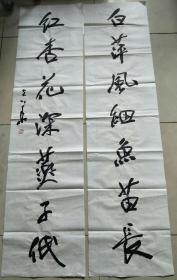 白萍風細魚苗長
紅杏花深燕子低